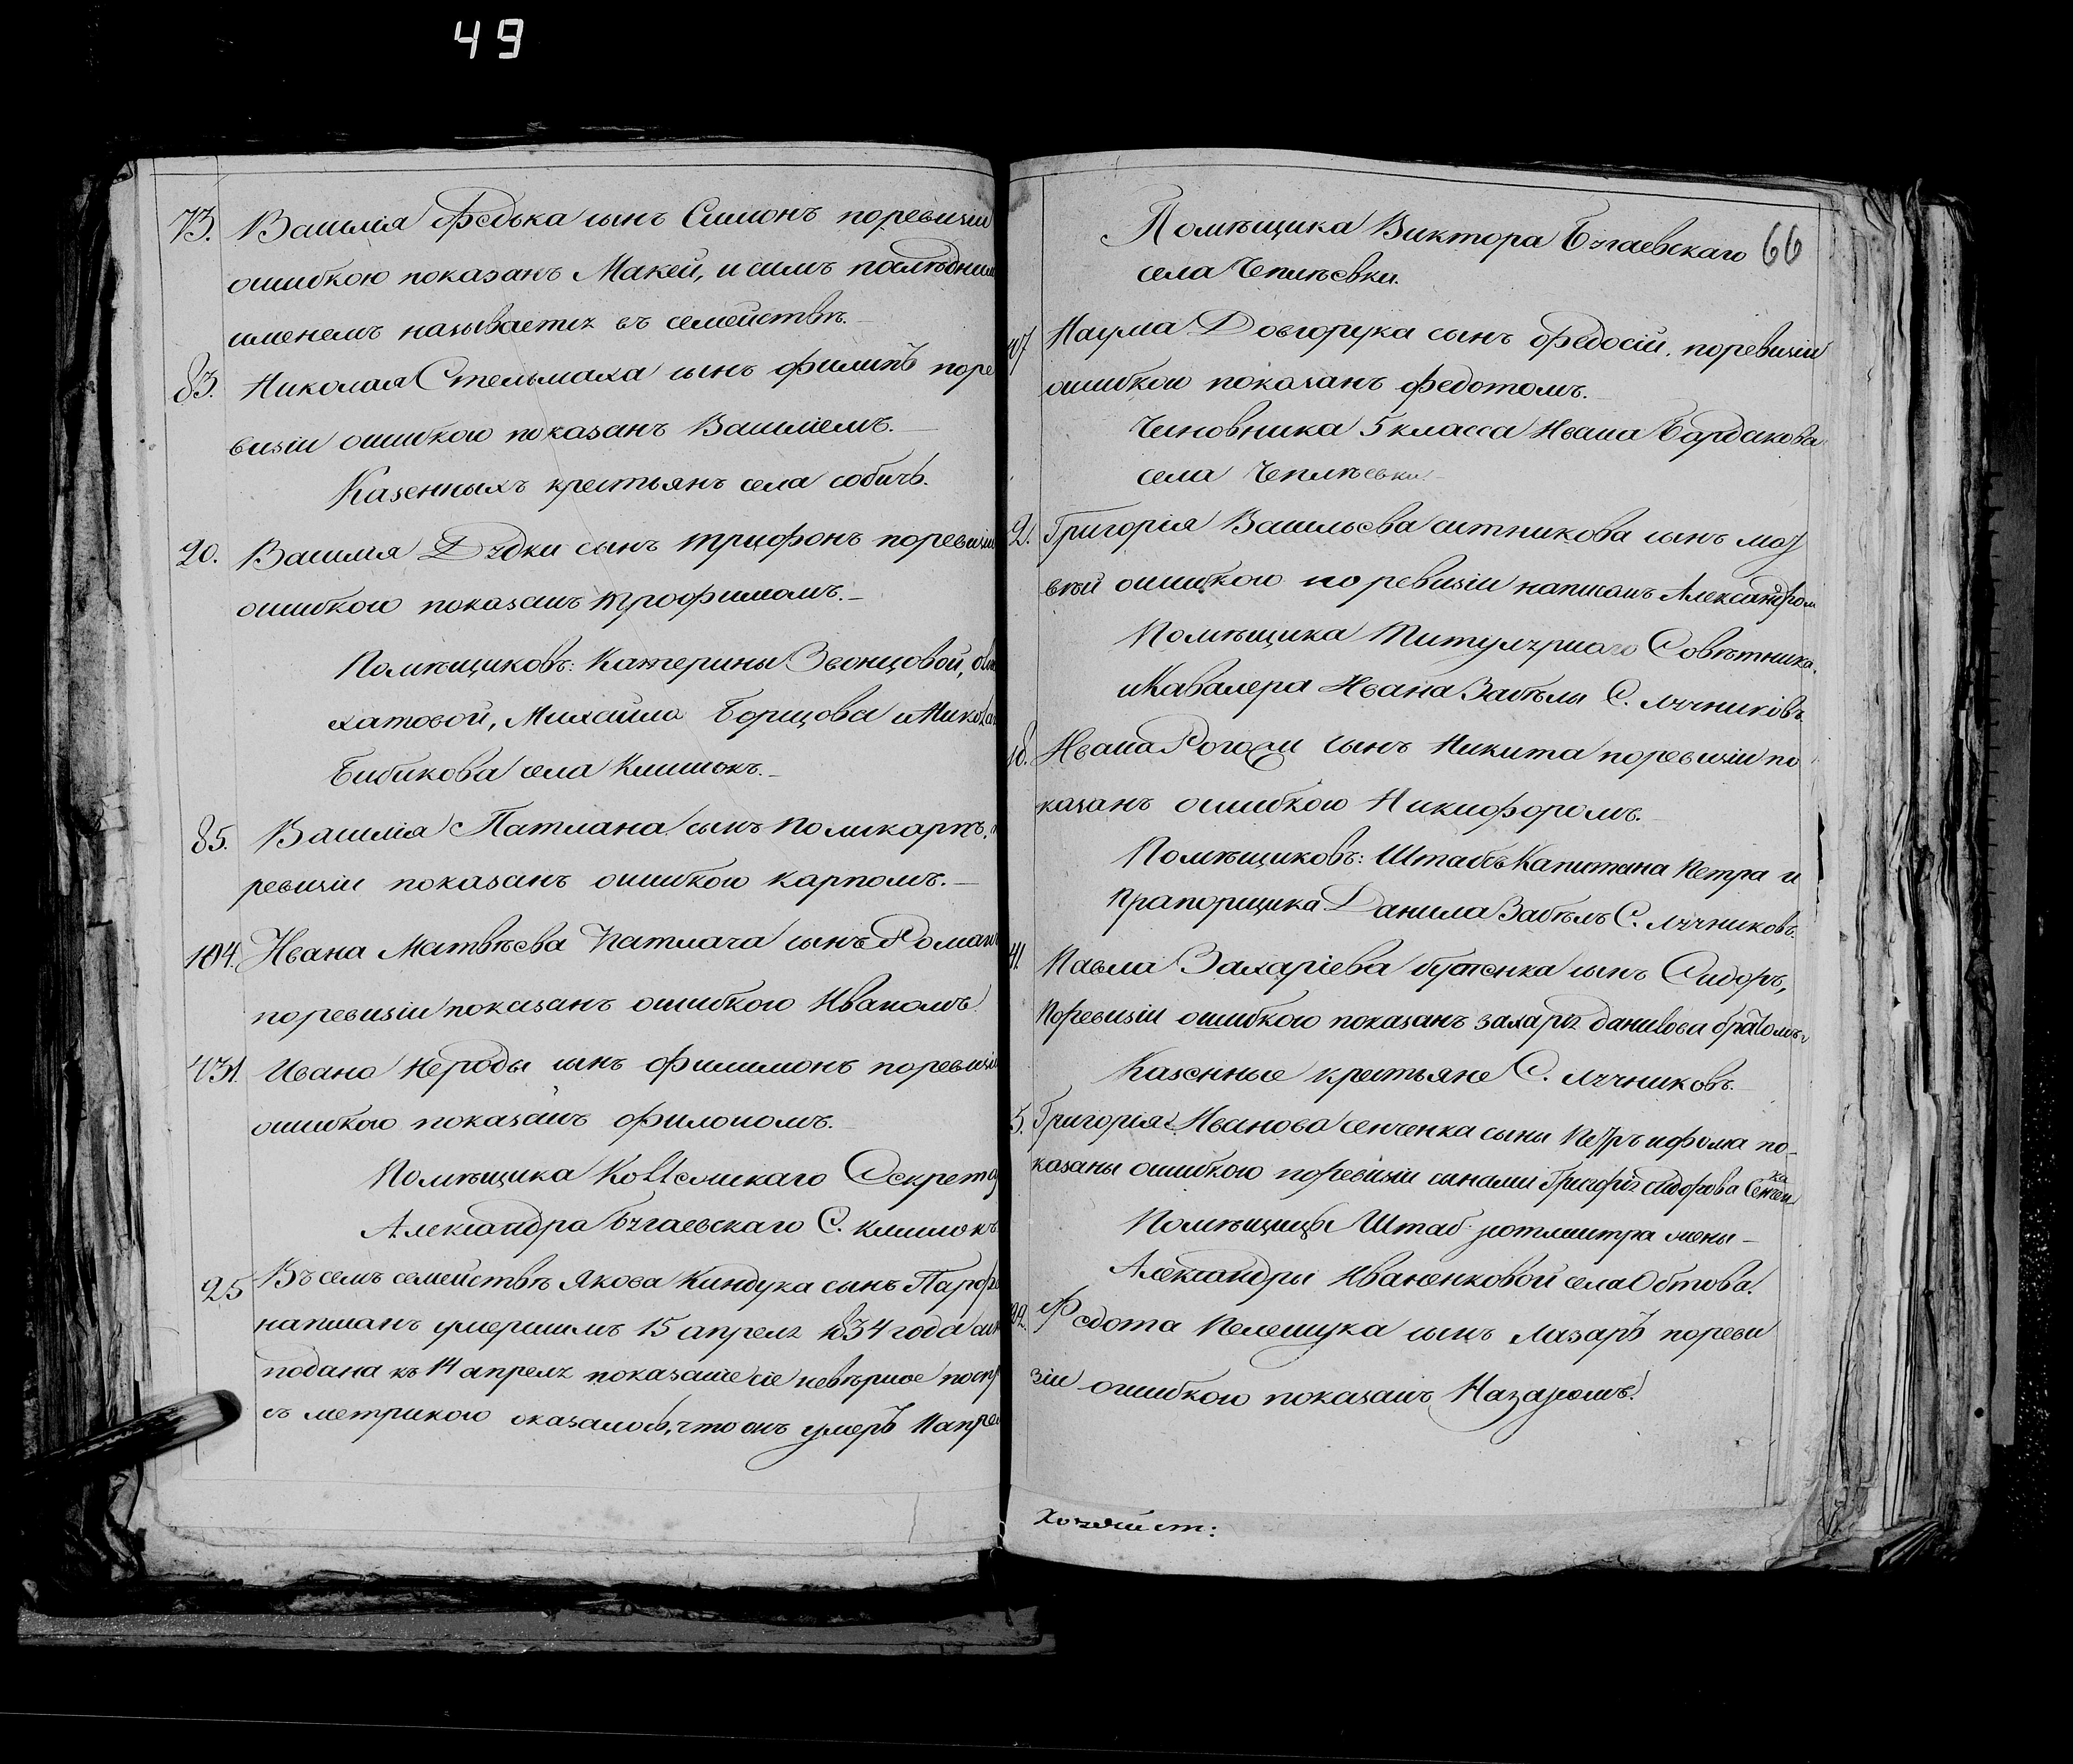 49
73. Василія Федька сынъ Симонъ поревизіи
ошибкою показанъ Макей, и симъ послѣдним
именемъ называется въ семействѣ.
83. Николая Стельмаха сынъ Филипъ поре
визіи ошибкою показанъ Василіемъ.
Казенныхъ крестьянъ села Собичъ.
20. Василія Дудки сынъ Трифонъ поревизіи
ошибкою показанъ Трофимомъ.
Помѣщиковъ: Катерины Звонцовой,
хатовой, Михайла Борщова и Микола
Бибикова села Клишокъ.
85. Василія Патлана сынъ Поликарпъ,
ревизіи показанъ ошибкою Карпомъ.
104. Ивана Матвѣева Патлача сынъ Роман
поревизіи показанъ ошибкою Иваномъ
131. Ивана Нероды сынъ Филимонъ поревизіи
ошибкою показанъ Филономъ.
Помѣщика Коллежскаго Секрета
Александра Бугаевскаго С. Клишокъ
25 Въ семъ семействѣ Якова Киндука сынъ Парфе
написанъ умершимъ 15 апреля 1834 года
подана къ 14 апреля показаніе сіе невѣрное по
съ метрикою оказалось, что онъ умеръ 11 апре
Помѣщика Виктора Бугаевскаго 66
села Чеплѣевки.
Наума Довгорука сынъ Федосій, поревизіи
ошибкою показанъ Федотомъ.
Чиновника 5 класса Ивана Бардакова
села Чеплѣевки.
2. Григорія Васильева Ситникова сынъ Мат
вѣй ошибкою по ревизіи написанъ Александром
Помѣщика Титулярнаго Совѣтника
и Кавалера Ивана Забѣлы С. Лучниковъ.
Ивана Рогози сынъ Никита поревизіи по
казанъ ошибкою Никифоромъ.
Помѣщиковъ: Штабсъ Капитана Петра и
Прапорщика Данила Забѣлъ С. Лучниковъ.
41. Павла Захаріева Бутенка сынъ Сидоръ,
Поревизіи ошибкою показанъ Захаря Данилова братомъ
Казенные крестьяне С. Лучниковъ.
5. Григорія Иванова Сенченка сыны Петръ и Фома по-
казаны ошибкою поревизіи сынами Григоря Сидорова Сенчен
ка
Помѣщицы Штаб-ротмистра жены
Александры Иваненковой села Обтова.
92. Федота Пелешука сынъ Лазаръ пореви
зіи ошибкою показанъ Назаромъ.
Хозяйст: